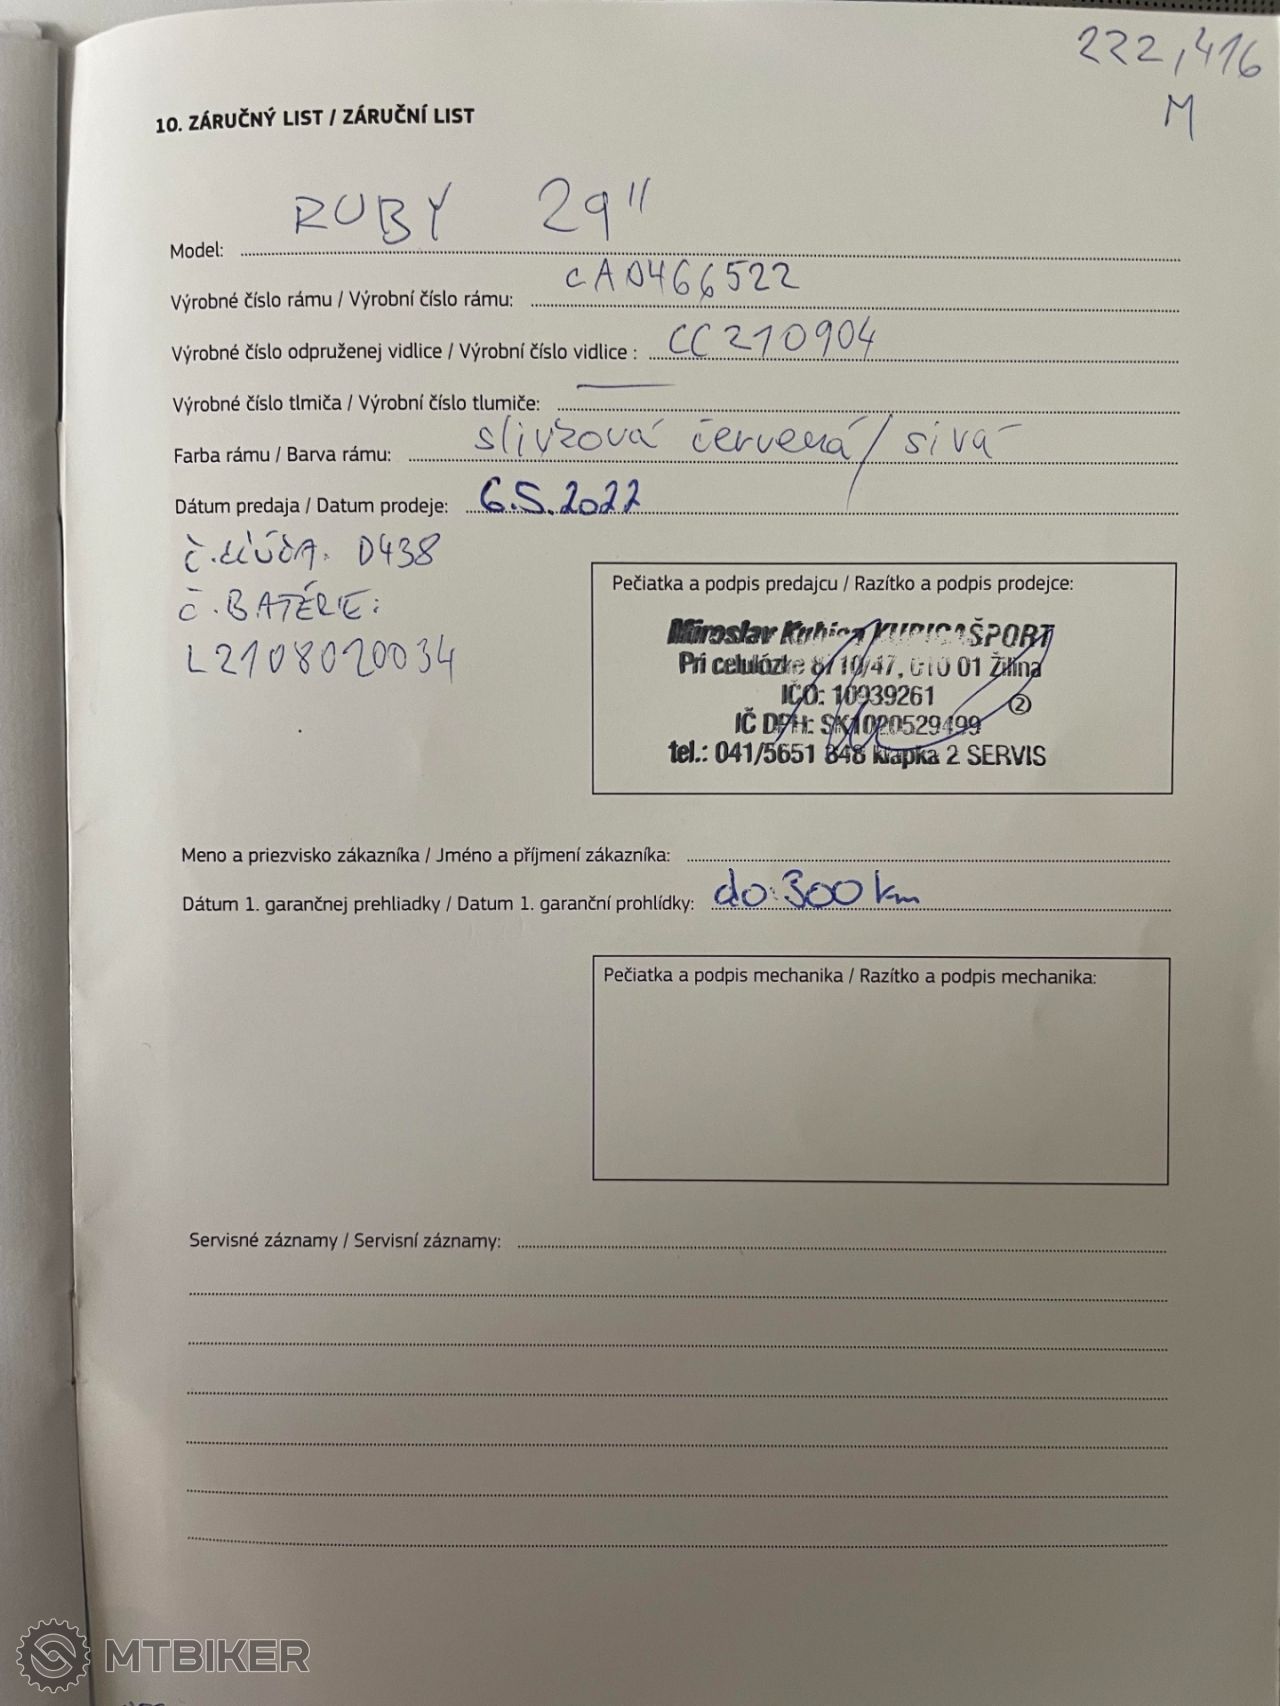 222,416
M
10. ZÁRUČNÝ LIST / ZÁRUČNÍ LIST
Model: RUBY 29"
Výrobné číslo rámu / Výrobní číslo rámu: CA0466522
Výrobné číslo odpruženej vidlice / Výrobní číslo vidlice : CC210904
Výrobné číslo tlmiča / Výrobní číslo tlumiče: —
Farba rámu / Barva rámu: slivková červená / sivá
Dátum predaja / Datum prodeje: 6.5.2022
č. kľúča. 0438
č. BATÉRIE:
L2108020034
Pečiatka a podpis predajcu / Razítko a podpis prodejce:
Miroslav Kubica KUBICAŠPORT
Pri celulózke 8/10/47, 010 01 Žilina
IČO: 10939261
2
IČ DPH: SK1020529499
tel.: 041/5651 848 klapka 2 SERVIS
Meno a priezvisko zákazníka / Jméno a příjmení zákazníka:
Dátum 1. garančnej prehliadky / Datum 1. garanční prohlídky: do 300 km
Pečiatka a podpis mechanika / Razítko a podpis mechanika:
Servisné záznamy / Servisní záznamy:
MTBIKER